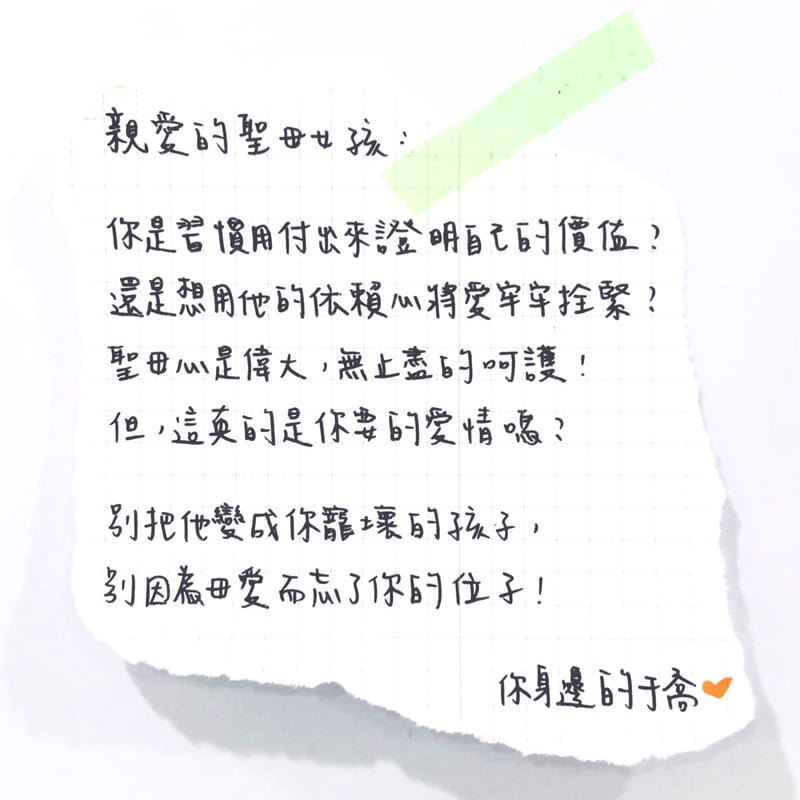 親愛的聖母女孩：
你是習慣用付出來證明自己的價值？
還是想用他的依賴心將愛牢牢拴緊？
聖母心是偉大，無止盡的呵護！
但，這真的是你要的愛情嗎？
別把他變成你寵壞的孩子，
別因為母愛而忘了你的位子！
你身邊的于喬